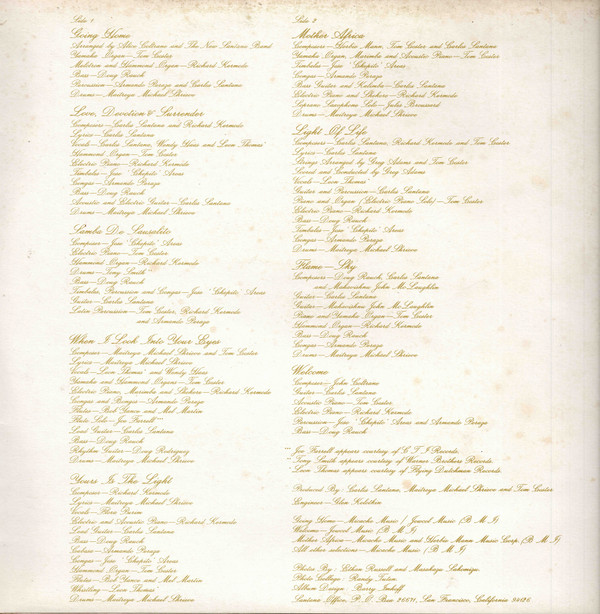 Side 1
Going Home
Arranged by Alice Coltrane and The New Santana Band
Yamaha Organ—Tom Coster
Mellotron and Hammond Organ—Richard Kermode
Bass—Doug Rauch
Percussion—Armando Peraza and Carlos Santana
Drums—Maitreya Michael Shrieve
Love, Devotion & Surrender
Composers—Carlos Santana and Richard Kermode
Lyrics—Carlos Santana
Vocals—Carlos Santana, Wendy Haas and Leon Thomas
Hammond Organ—Tom Coster
Electric Piano—Richard Kermode
Timbales—Jose 'Chepito' Areas
Congas—Armando Peraza
Bass—Doug Rauch
Acoustic and Electric Guitar—Carlos Santana
Drums—Maitreya Michael Shrieve
Samba De Sausalito
Composer—Jose 'Chepito' Areas
Electric Piano—Tom Coster
Hammond Organ—Richard Kermode
Drums—Tony Smith**
Bass—Doug Rauch
Timbales, Percussion and Congas—Jose 'Chepito' Areas
Guitar—Carlos Santana
Latin Percussion—Tom Coster, Richard Kermode
and Armando Peraza
When I Look Into Your Eyes
Composer—Maitreya Michael Shrieve and Tom Coster
Lyrics—Maitreya Michael Shrieve
Vocals—Leon Thomas and Wendy Haas
Yamaha and Hammond Organs—Tom Coster
Electric Piano, Marimba and Shekere—Richard Kermode
Congas and Bongos—Armando Peraza
Flutes—Bob Yance and Mel Martin
Flute Solo—Joe Farrell
Lead Guitar—Carlos Santana
Bass—Doug Rauch
Rhythm Guitar—Doug Rodriguez
Drums—Maitreya Michael Shrieve
Yours Is The Light
Composer—Richard Kermode
Lyrics—Maitreya Michael Shrieve
Vocals—Flora Purim
Electric and Acoustic Piano—Richard Kermode
Lead Guitar—Carlos Santana
Bass—Doug Rauch
Cabasa—Armando Peraza
Congas—Jose 'Chepito' Areas
Hammond Organ—Tom Coster
Flutes—Bob Yance and Mel Martin
Whistling—Leon Thomas
Drums—Maitreya Michael Shrieve
Side 2
Mother Africa
Composers—Herbie Mann, Tom Coster and Carlos Santana
Yamaha Organ, Marimba and Acoustic Piano—Tom Coster
Timbales—Jose 'Chepito' Areas
Congas—Armando Peraza
Bass Guitar and Kalimba—Carlos Santana
Electric Piano and Shekere—Richard Kermode
Soprano Saxophone Solo—Jules Broussard
Drums—Maitreya Michael Shrieve
Light Of Life
Composers—Carlos Santana, Richard Kermode and Tom Coster
Lyrics—Carlos Santana
Strings Arranged by Greg Adams and Tom Coster
Scored and Conducted by Greg Adams
Vocals—Leon Thomas
Guitar and Percussion—Carlos Santana
Piano and Organ (Electric Piano Solo)—Tom Coster
Electric Piano—Richard Kermode
Bass—Doug Rauch
Timbales—Jose 'Chepito' Areas
Congas—Armando Peraza
Drums—Maitreya Michael Shrieve
Flame—Sky
Composers—Doug Rauch, Carlos Santana
and Mahavishnu John McLaughlin
Guitar—Carlos Santana
Guitar—Mahavishnu John McLaughlin
Piano and Yamaha Organ—Tom Coster
Hammond Organ—Richard Kermode
Bass—Doug Rauch
Congas—Armando Peraza
Drums—Maitreya Michael Shrieve
Welcome
Composer—John Coltrane
Guitar—Carlos Santana
Acoustic Piano—Tom Coster
Electric Piano—Richard Kermode
Percussion—Jose 'Chepito' Areas and Armando Peraza
Bass—Doug Rauch
Joe Farrell appears courtesy of C T I Records.
Tony Smith appears courtesy of Warner Brothers Records.
Leon Thomas appears courtesy of Flying Dutchman Records.
Produced By: Carlos Santana, Maitreya Michael Shrieve and Tom Coster
Engineer—Glen Kolotkin
Going Home—Maracha Music / Jowcol Music (B. M. I)
Welcome—Jowcol Music (B. M. I)
Mother Africa—Maracha Music and Herbie Mann Music Corp. (B. M. I)
All other selections—Maracha Music (B. M. I)
Photos By: Ethan Russell and Masahugo Sakomizu.
Photo Collage: Randy Tuten
Album Design: Barry Imhoff
Santana Office, P. O. Box 26671, San Francisco, California 94126